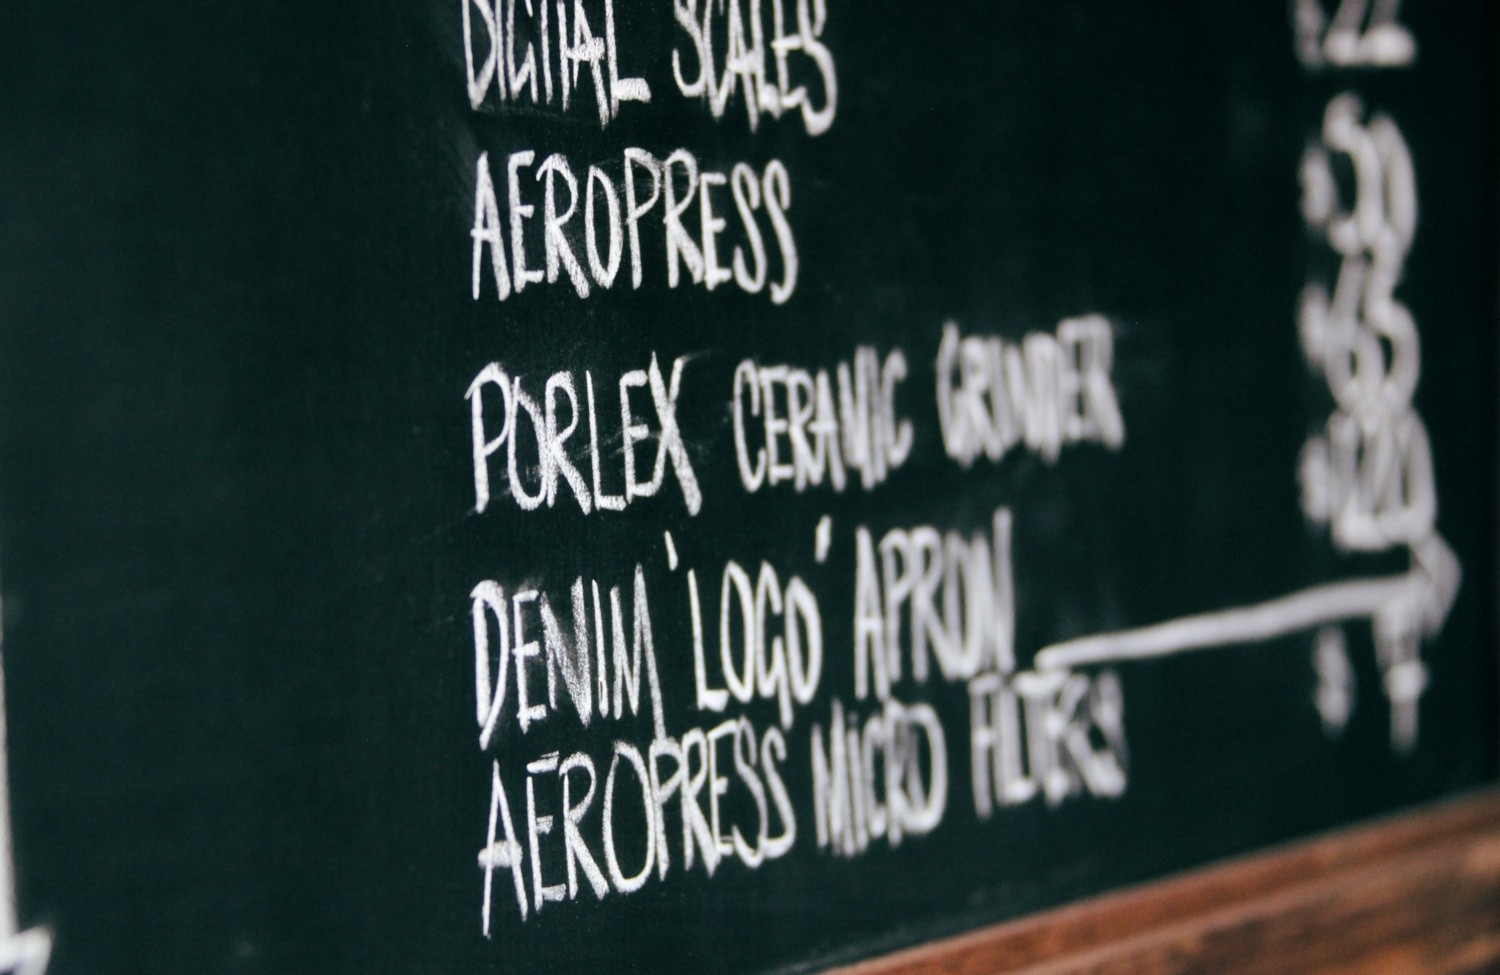 DIGITAL SCALES
AEROPRESS
PORLEX CERAMIC GRINDER
DENIM 'LOGO' APRON
AEROPRESS MICRO FILTERS